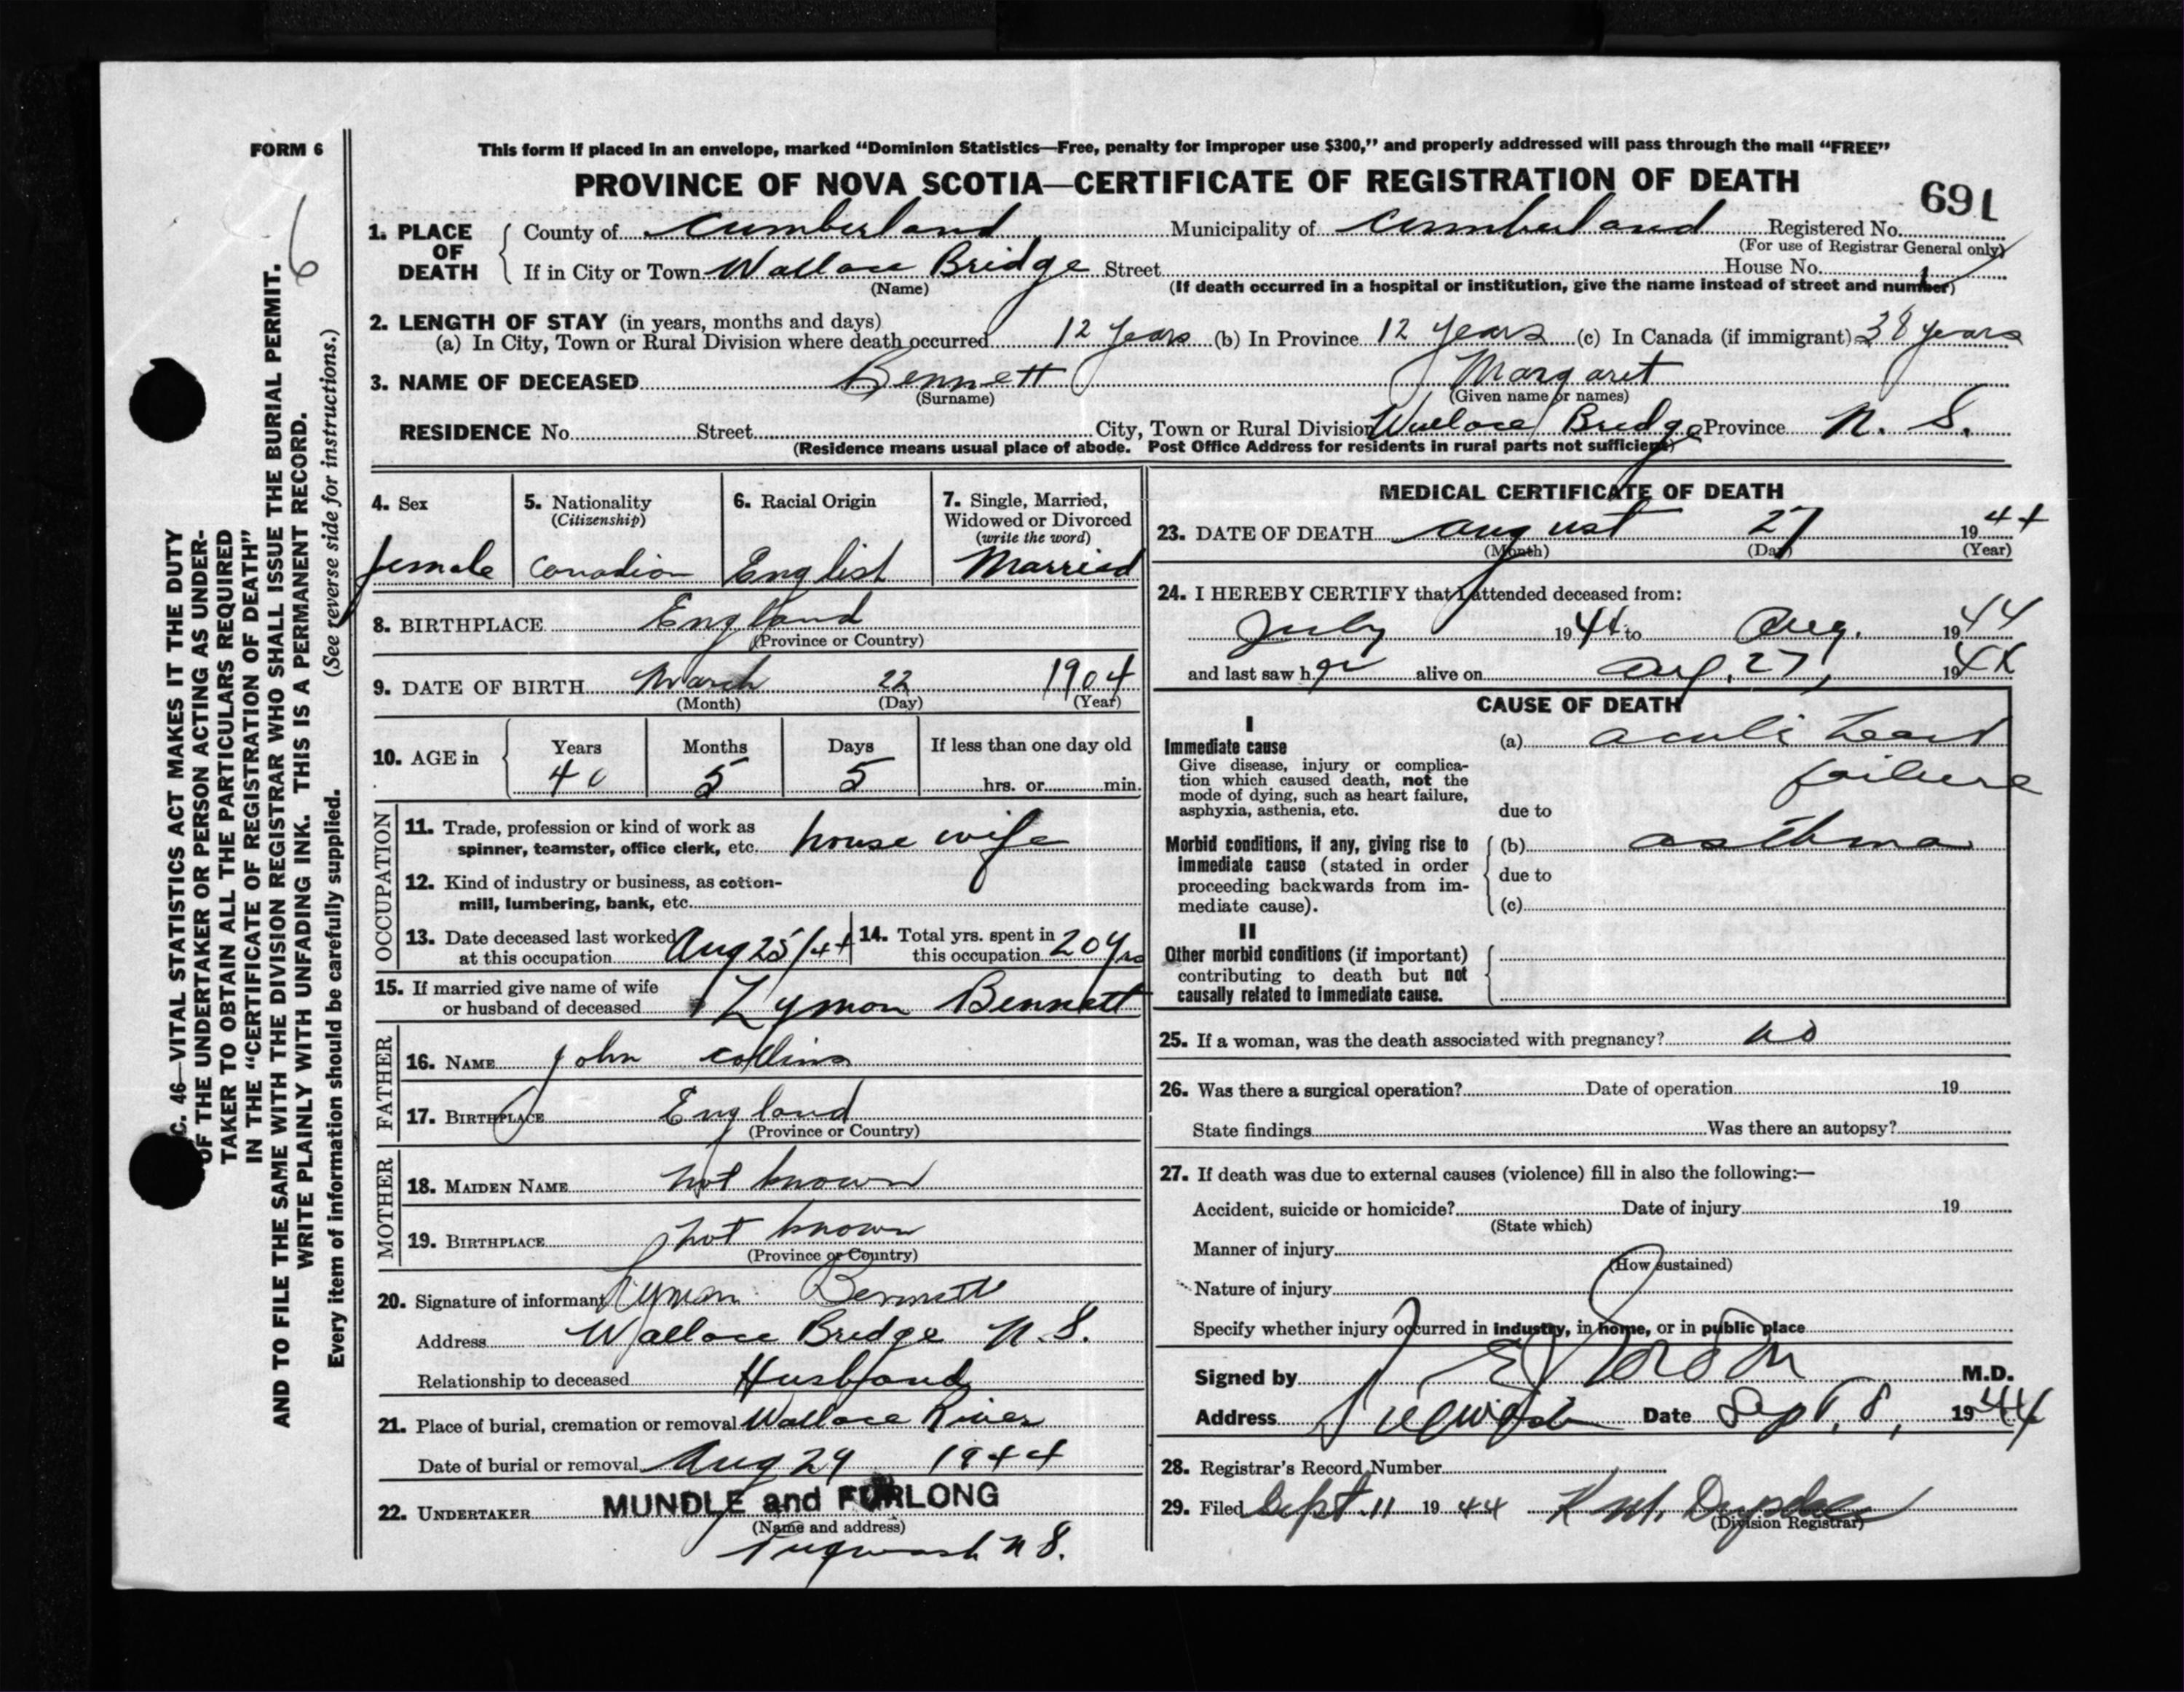 FORM 6
6
This form if placed in an envelope, marked “Dominion Statistics—Free, penalty for improper use $300,” and properly addressed will pass through the mail “FREE”
PROVINCE OF NOVA SCOTIA—CERTIFICATE OF REGISTRATION OF DEATH
691
1. PLACE OF DEATH
County of Cumberland Municipality of Cumberland Registered No.
(For use of Registrar General only)
If in City or Town Wallace Bridge Street House No. 1
(Name) (If death occurred in a hospital or institution, give the name instead of street and number)
2. LENGTH OF STAY (in years, months and days)
(a) In City, Town or Rural Division where death occurred 12 years (b) In Province 12 years (c) In Canada (if immigrant) 38 years
3. NAME OF DECEASED Bennett Margaret
(Surname) (Given name or names)
RESIDENCE No. Street City, Town or Rural Division Wallace Bridge Province N. S.
(Residence means usual place of abode. Post Office Address for residents in rural parts not sufficient)
4. Sex
female
5. Nationality
(Citizenship)
Canadian
6. Racial Origin
English
7. Single, Married,
Widowed or Divorced
(write the word)
Married
8. BIRTHPLACE England
(Province or Country)
9. DATE OF BIRTH March 22 1904
(Month) (Day) (Year)
10. AGE in
Years Months Days If less than one day old
40 5 5 hrs. or min.
OCCUPATION
11. Trade, profession or kind of work as
spinner, teamster, office clerk, etc. house wife
12. Kind of industry or business, as cotton-
mill, lumbering, bank, etc.
13. Date deceased last worked
at this occupation Aug 25/44
14. Total yrs. spent in
this occupation 20 yrs
15. If married give name of wife
or husband of deceased Lymon Bennett
FATHER
16. NAME John Collins
17. BIRTHPLACE England
(Province or Country)
MOTHER
18. MAIDEN NAME not known
19. BIRTHPLACE not known
(Province or Country)
20. Signature of informant Lyman Bennett
Address Wallace Bridge N. S.
Relationship to deceased Husband
21. Place of burial, cremation or removal Wallace River
Date of burial or removal Aug 29 1944
22. UNDERTAKER MUNDLE and FURLONG
(Name and address)
Pugwash N S.
MEDICAL CERTIFICATE OF DEATH
23. DATE OF DEATH August 27 1944
(Month) (Day) (Year)
24. I HEREBY CERTIFY that I attended deceased from:
July 1944 to Aug. 1944
and last saw her alive on Aug. 27, 1944
CAUSE OF DEATH
I
Immediate cause
Give disease, injury or complica-
tion which caused death, not the
mode of dying, such as heart failure,
asphyxia, asthenia, etc.
(a) acute heart
failure
due to
Morbid conditions, if any, giving rise to
immediate cause (stated in order
proceeding backwards from im-
mediate cause).
(b) asthma
due to
(c)
II
Other morbid conditions (if important)
contributing to death but not
causally related to immediate cause.
25. If a woman, was the death associated with pregnancy? no
26. Was there a surgical operation? Date of operation 19
State findings Was there an autopsy?
27. If death was due to external causes (violence) fill in also the following:—
Accident, suicide or homicide? Date of injury 19
(State which)
Manner of injury
(How sustained)
Nature of injury
Specify whether injury occurred in industry, in home, or in public place
Signed by M.D.
Address Pugwash Date Sept. 8, 1944
28. Registrar's Record Number
29. Filed Sept. 11 1944 K M. Drysdale
(Division Registrar)
C. 46—VITAL STATISTICS ACT MAKES IT THE DUTY
OF THE UNDERTAKER OR PERSON ACTING AS UNDER-
TAKER TO OBTAIN ALL THE PARTICULARS REQUIRED
IN THE “CERTIFICATE OF REGISTRATION OF DEATH”
AND TO FILE THE SAME WITH THE DIVISION REGISTRAR WHO SHALL ISSUE THE BURIAL PERMIT.
WRITE PLAINLY WITH UNFADING INK. THIS IS A PERMANENT RECORD.
Every item of information should be carefully supplied. (See reverse side for instructions.)